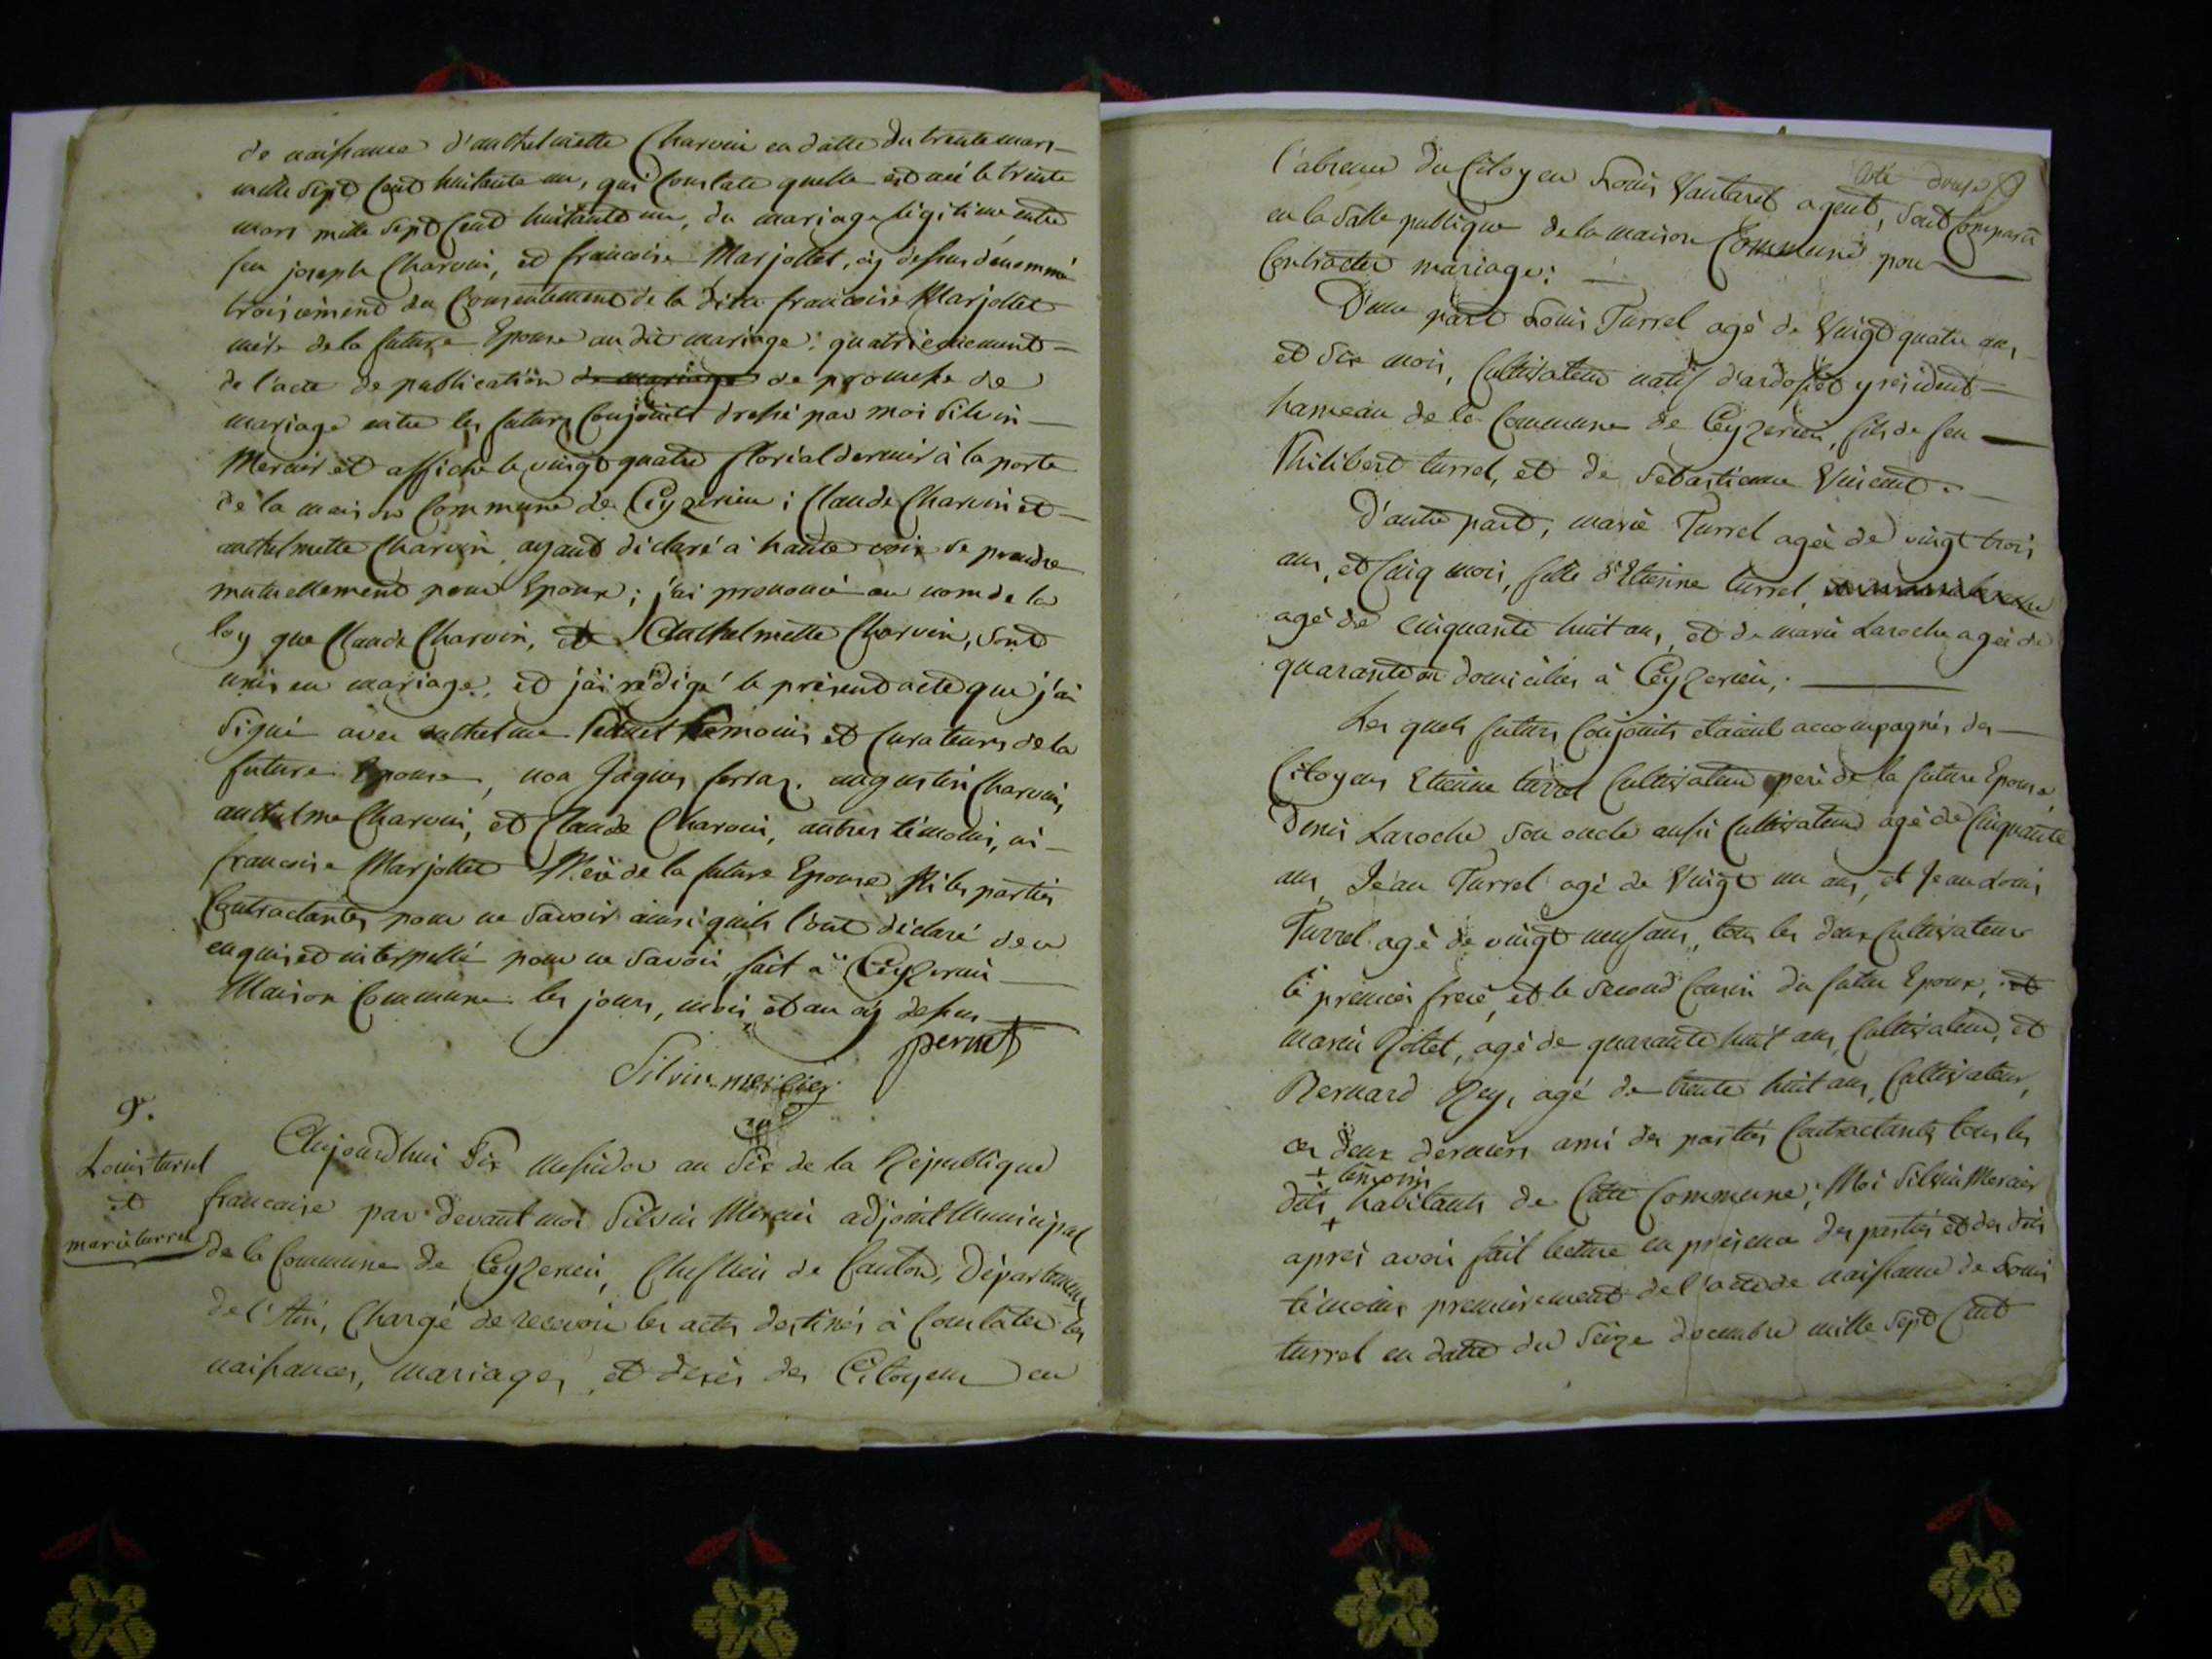 de naissance d'anthelmette Charvin en datte du trente mars
mille Sept Cent huitante un, qui Constate quelle est née le trente
mars mille Sept Cent huitante un, du mariage légitime entre
feu joseph Charvin, et francoise Marjollet, cy dessus dénommé
troisiement du Consentement de la dite francoise Marjollet
mère de la future Epouse au dit mariage; quatriemement
de l'acte de publication de mariage de promesse de
mariage entre les futurs Conjoints dressé par moi Silvin
Mercier et affiché le vingt quatre floréal dernier à la porte
de la maison Commune de Ceyzerieu; Claude Charvin et
anthelmette Charvin ayant déclaré à haute voix se prendre
mutuellement pour Epoux; j'ai prononcé au nom de la
loy que Claude Charvin, et Anthelmette Charvin, sont
unis en mariage, et j'ai rédigé le présent acte que j'ai
Signé avec anthelme Pernet témoins et Curateurs de la
future Epouse, non Jaques ferraz, augustin Charvin,
anthelme Charvin, et Claude Charvin, autres témoins, ni
francoise Marjollet Mère de la future Epouse Ni les parties
Contractantes pour ne Savoir ainsi quils l'ont déclaré de ce
enquis et interpellé pour ne Savoir, fait à Ceyzerieu
Maison Commune les jours, mois et an cy dessus
pernet
Silvin mercier
9.
Louis turrel
et
marie turrel
Aujourdhui Six messidor an Six de la République
francaise par devant moi Silvin Mercier adjoint Municipal
de la Commune de Ceyzerieu, Cheflieu de Canton, Département
de l'Ain, Chargé de recevoir les actes destinés à Constater les
naissances, mariages, et decès des Citoyens en
Coté douze
l'absence du Citoyen Louis Vautaret agent, Sont Comparu
en la Salle publique de la maison Commune pour
Contracter mariage:
D'une part Louis Turrel agé de Vingt quatre ans
et Six mois, Cultivateur natif d'ardosset y résident
hameau de la Commune de Ceyzerieu, fils de feu
Philibert turrel, et de Sébastienne Vincent.
D'autre part, marie Turrel agée de vingt trois
ans, et Cinq mois, fille d'Etienne turrel,
agé de Cinquante huit ans, et de marie Laroche agée de
quarante domiciliés à Ceyzerieu;
Les quels futurs Conjoints étaient accompagnés des
Citoyens Etienne turrel Cultivateur père de la future Epouse,
Denis Laroche Son oncle aussi Cultivateur agé de Cinquante
ans, Jean Turrel agé de Vingt un ans, et Jean Louis
Turrel agé de vingt neuf ans, tous les deux Cultivateurs
le premier frere, et le Second Cousin du futur Epoux, et
marin Jollet, agé de quarante huit ans, Cultivateur, et
Bernard Rey, agé de trente huit ans, Cultivateur,
ces deux derniers ami des parties Contractantes tous les
+ témoins
dits + habitants de Cette Commune; Moi Silvin Mercier
après avoir fait lecture en présence des parties et des dits
témoins premierement de l'acte de naissance de Louis
turrel en datte du Seize decembre mille Sept Cent